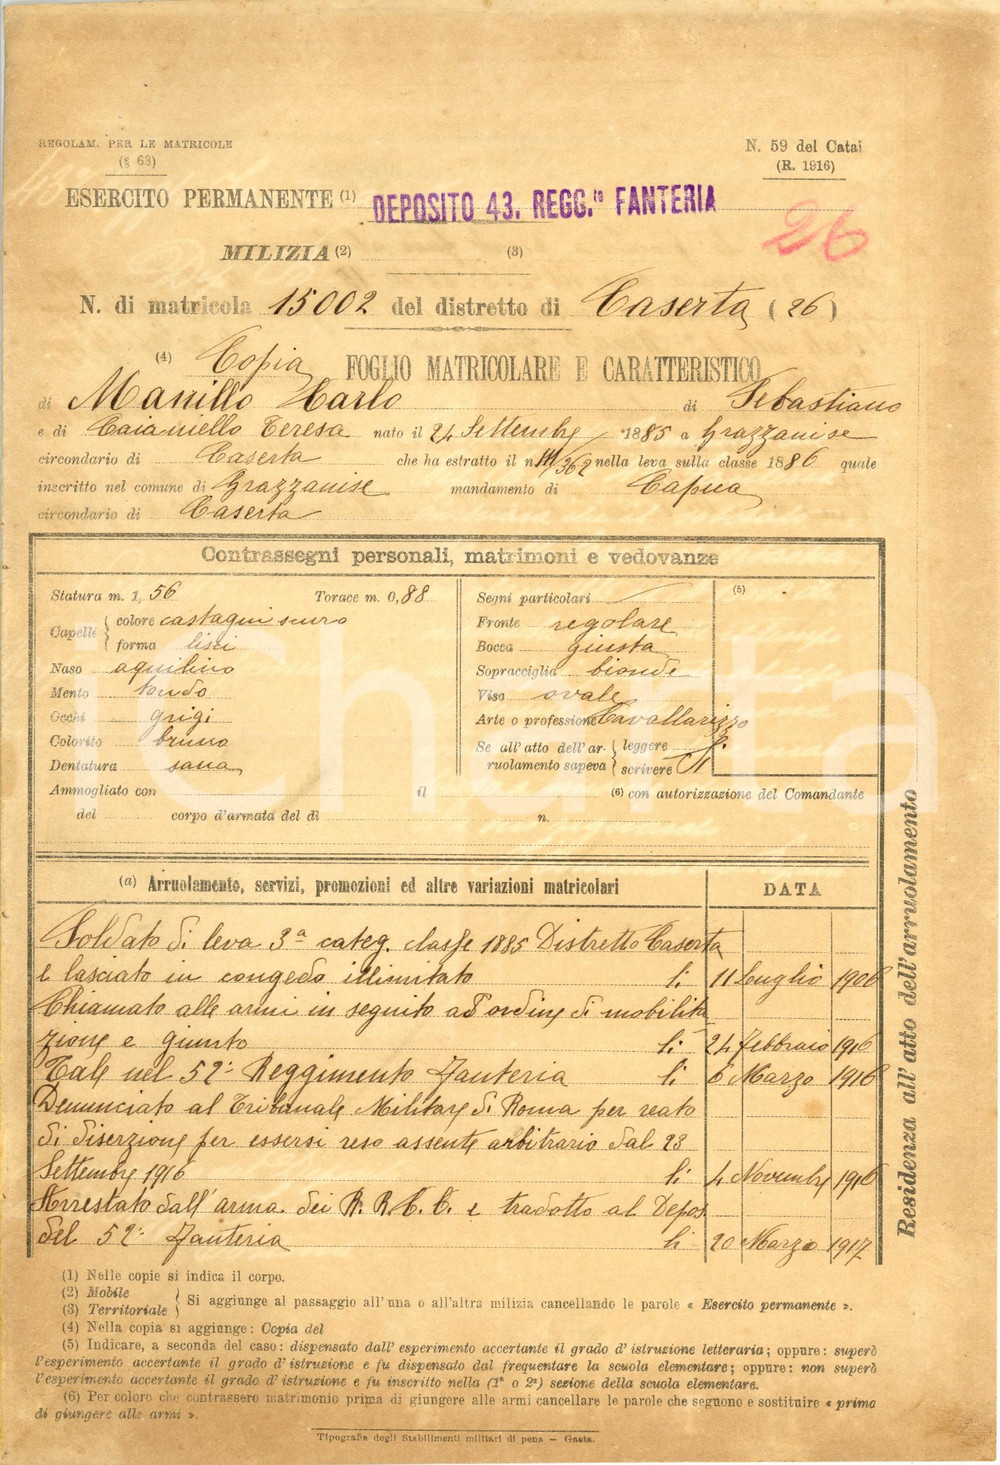 REGOLAM. PER LE MATRICOLE
(§ 63)
N. 59 del Catal
(R. 1916)
ESERCITO PERMANENTE (1) DEPOSITO 43. REGG.to FANTERIA
26
MILIZIA (2) (3)
N. di matricola 15002 del distretto di Caserta (26)
(4) Copia FOGLIO MATRICOLARE E CARATTERISTICO
di Carlo di Sebastiano
e di Caianiello Teresa nato il 24 Settembre 1885 a Grazzanise
circondario di Caserta che ha estratto il n. 362 nella leva sulla classe 1886 quale
inscritto nel comune di Grazzanise mandamento di Capua
circondario di Caserta
Contrassegni personali, matrimoni e vedovanze
Statura m. 1, 56 Torace m. 0,88
Capelli colore castagni scuro
forma lisci
Naso aquilino
Mento tondo
Occhi grigi
Colorito bruno
Dentatura sana
Segni particolari
Fronte regolare
Bocca giusta
Sopracciglia bionde
Viso ovale
Arte o professione Cavallarizzo
Se all'atto dell'arruolamento sapeva leggere
scrivere
(5)
Ammogliato con il (6) con autorizzazione del Comandante
del corpo d'armata del dì n.
(a) Arruolamento, servizi, promozioni ed altre variazioni matricolari DATA
Soldato di leva 3a categ. classe 1885 Distretto Caserta
e lasciato in congedo illimitato li 11 Luglio 1906
Chiamato alle armi in seguito ad ordine di mobilita
zione e giunto li 24 Febbraio 1916
Tale nel 52: Reggimento Fanteria li 6 Marzo 1916
Denunciato al Tribunale Militare di Roma per reato
di diserzione per essersi reso assente arbitrario dal 23
Settembre 1916 li 4 Novembre 1916
Arrestato dall'arma dei R. R. C. C. e tradotto al Depos.
del 52: Fanteria li 20 Marzo 1917
Residenza all'atto dell'arruolamento
(1) Nelle copie si indica il corpo.
(2) Mobile
(3) Territoriale
Si aggiunge al passaggio all'una o all'altra milizia cancellando le parole « Esercito permanente ».
(4) Nella copia si aggiunge: Copia del
(5) Indicare, a seconda del caso: dispensato dall'esperimento accertante il grado d'istruzione letteraria; oppure: superò
l'esperimento accertante il grado d'istruzione e fu dispensato dal frequentare la scuola elementare; oppure: non superò
l'esperimento accertante il grado d'istruzione e fu inscritto nella (1ª o 2ª) sezione della scuola elementare.
(6) Per coloro che contrassero matrimonio prima di giungere alle armi cancellare le parole che seguono e sostituire « prima
di giungere alle armi ».
Tipografia degli Stabilimenti militari di pena — Gaeta.